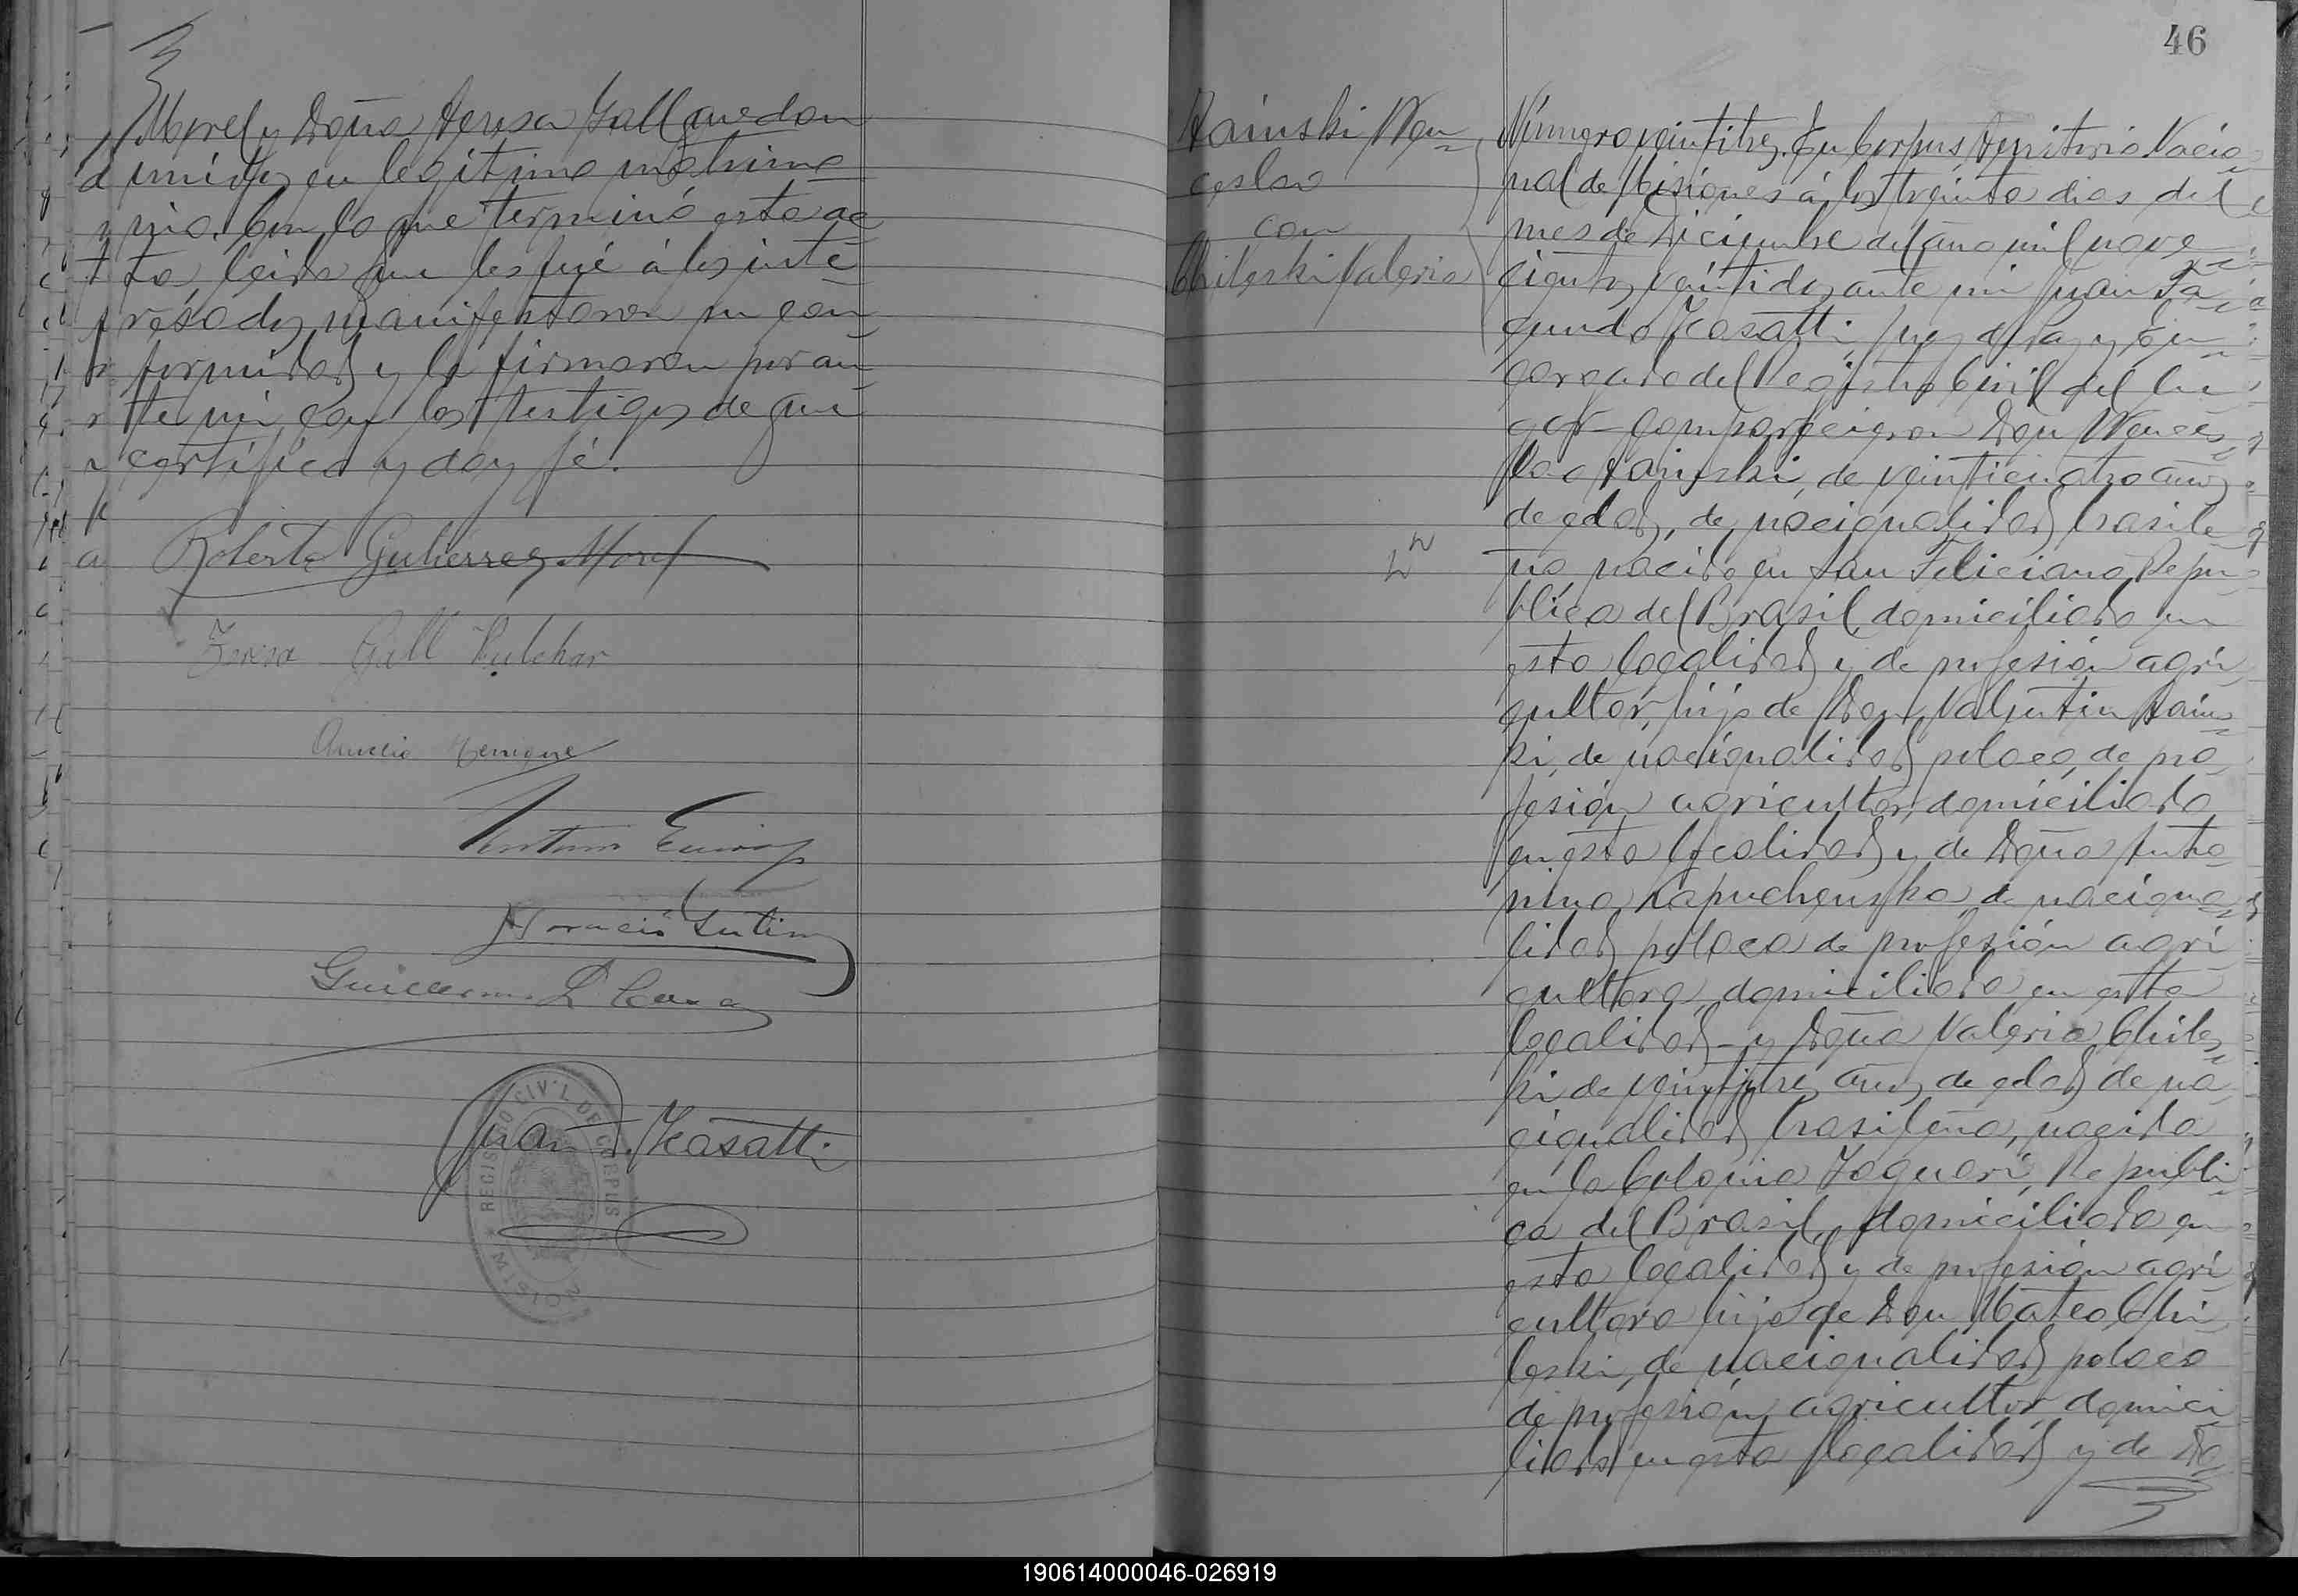 Morel y Doña Teresa Gall quedan
unidos en legítimo matrimo
nio. Con lo que terminó esta ac
ta, leida que les fué á los inte
resados, manifestaron su con
formidad y la firmaron por an
te mi con los testigos de que
certifico y doy fé.
Roberto Gutiérrez Morel
Teresa Gall
Aurelio
Horacio
Guillermo L.
Juan F. Kasatti
REGISTRO CIVIL DE CORPUS
MISIONES
46
Stainski Wen
ceslao
con
Chileski Valeria
Número veintitres. En Corpus, Territorio Nacio
nal de Misiones á los treinta dias del
mes de Diciembre del año mil nove
cientos veintidos, ante mi Juan Fa
cundo Kasatti, Juez de Paz y En
cargado del Registro Civil del lu
gar comparecieron Don Wences
lao Stainski, de veinticuatro años
de edad, de nacionalidad brasile
ño, nacido en San Feliciano, Repu
blica del Brasil, domiciliado en
esta localidad y de profesión agri
cultor, hijo de Don Valentin Stains
ki, de nacionalidad polaco, de pro
fesión agricultor, domiciliado
en esta localidad y de Doña Anto
nina Kapuchenska de naciona
lidad polaca de profesión agri
cultora, domiciliada en esta
localidad y Doña Valeria Chiles
ki de veintitres años de edad de na
cionalidad brasileña, nacida
en la Colonia Jaguari, Republi
ca del Brasil, domiciliada en
esta localidad y de profesión agri
cultora hija de Don Mateo Chi
leski, de nacionalidad polaco
de profesión agricultor domici
liado en esta localidad y de Do
190614000046-026919